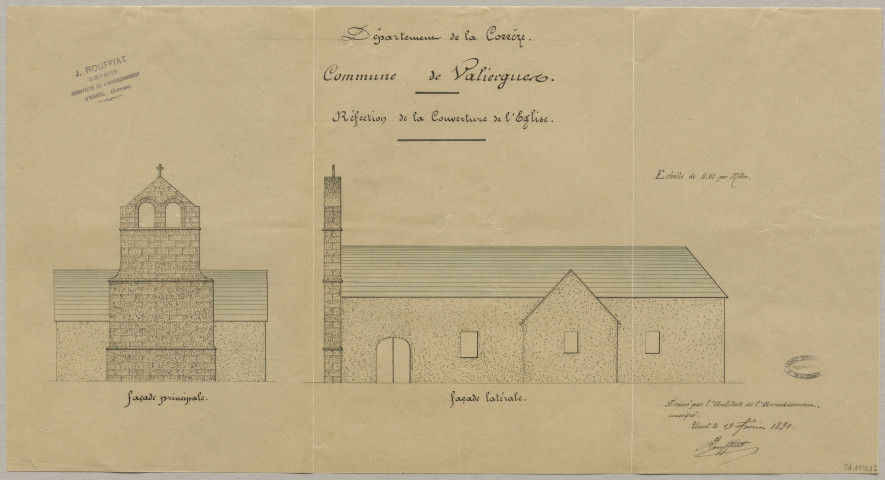 Département de la Corrèze.
J. ROUFFIAT
EXPERT
ARCHITECTE DE L'ARRONDISSEMENT
D'USSEL (Corrèze)
Commune de Valiergues.
Réfection de la Couverture de l'Eglise.
Echelle de 0,01 par Mètre.
façade principale.
façade latérale.
Dressé par l'Architecte de l'Arrondissement,
soussigné.
Ussel le 19 Février 1890.
Rouffiat